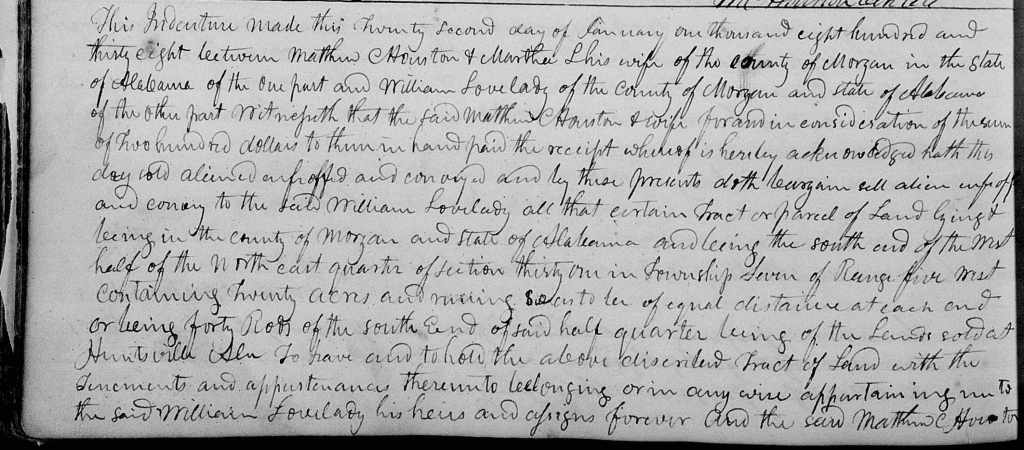 This Indenture made this Twenty second day of January one thousand eight hundred and
thirty eight between Mathew C Houston & Martha L his wife of the county of Morgan in the State
of Alabama of the One part and William Lovelady of the County of Morgan and state of Alabama
of the other part Witnesseth that the said Mathew C Houston & wife for and in consideration of the sum
of Two hundred dollars to them in hand paid the receipt whereof is hereby acknowledged hath this
day sold aliened enfeoffed and conveyed and by these presents doth bargain sell alien enfeoff
and convey to the said William Lovelady all that certain Tract or parcel of Land lying &
being in the county of Morgan and state of Alabama and being the south end of the West
half of the North east quarter of section thirty one in Township Seven of Range five West
containing Twenty acres and running so as to be of equal distance at each end
or being forty Rods of the south End of said half quarter being of the Lands sold at
Huntsville Ala To have and to hold the above discribed Tract of Land with the
Tenements and appurtenances thereunto belonging or in any wise appurtaining un to
the said William Lovelady his heirs and assigns forever And the said Mathew C Hous ton